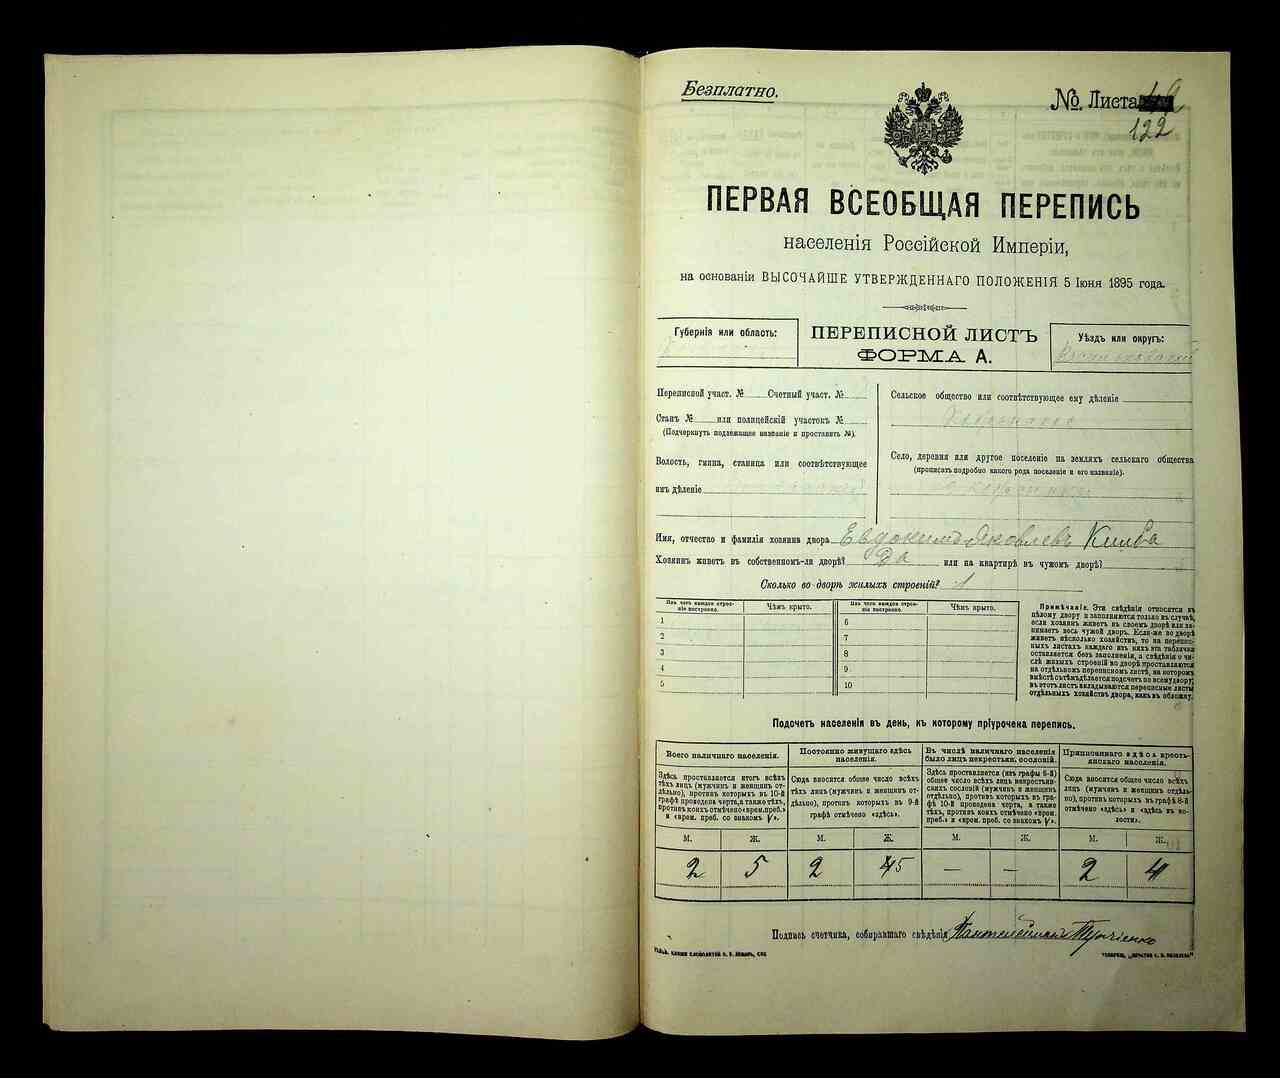 Безплатно.
№ Листа
122
ПЕРВАЯ ВСЕОБЩАЯ ПЕРЕПИСЬ
населенія Россійской Имперіи,
на основаніи ВЫСОЧАЙШЕ УТВЕРЖДЕННАГО ПОЛОЖЕНІЯ 5 Іюня 1895 года.
Губернія или область:
ПЕРЕПИСНОЙ ЛИСТЪ
ФОРМА А.
Уѣздъ или округъ:
Переписной участ. № Счетный участ. №
Станъ № или полицейскій участокъ №
(Подчеркнуть подлежащее названіе и проставить №).
Волость, гмина, станица или соотвѣтствующее
имъ дѣленіе
Сельское общество или соотвѣтствующее ему дѣленіе
Село, деревня или другое поселеніе на земляхъ сельскаго общества
(прописать подробно какого рода поселеніе и его названіе).
Имя, отчество и фамилія хозяина двора Евдокимъ Яковлевъ
Хозяинъ живетъ въ собственномъ-ли дворѣ? Да или на квартирѣ въ чужомъ дворѣ?
Сколько во дворѣ жилыхъ строеній? 1
Изъ чего каждое строеніе построено. Чѣмъ крыто. Изъ чего каждое строеніе построено. Чѣмъ крыто.
1 6
2 7
3 8
4 9
5 10
Примѣчаніе. Эти свѣдѣнія относятся къ
цѣлому двору и заполняются только въ случаѣ,
если хозяинъ живетъ въ своемъ дворѣ или занимаетъ
весь чужой дворъ. Если-же во дворѣ
живетъ нѣсколько хозяйствъ, то на переписныхъ
листахъ каждаго изъ нихъ эта табличка
оставляется безъ заполненія, а свѣдѣнія о числѣ
жилыхъ строеній во дворѣ проставляются
на отдѣльномъ переписномъ листѣ, на которомъ
вмѣстѣ съ тѣмъ дѣлается подсчетъ по всему двору;
въ этотъ листъ вкладываются переписные листы
отдѣльныхъ хозяйствъ двора, какъ въ обложку.
Подсчетъ населенія въ день, къ которому пріурочена перепись.
Всего наличнаго населенія.
Здѣсь проставляется итогъ всѣхъ
тѣхъ лицъ (мужчинъ и женщинъ отдѣльно),
противъ которыхъ въ 10-й
графѣ проведена черта, а также тѣхъ,
противъ коихъ отмѣчено «врем. преб.»
и «врем. преб. со знакомъ V».
Постоянно живущаго здѣсь
населенія.
Сюда вносится общее число всѣхъ
тѣхъ лицъ (мужчинъ и женщинъ отдѣльно),
противъ которыхъ въ 9-й
графѣ отмѣчено «здѣсь».
Въ числѣ наличнаго населенія
было лицъ некрестьян. сословій.
Здѣсь проставляется (изъ графы 6-й)
общее число всѣхъ лицъ некрестьянскихъ
сословій (мужчинъ и женщинъ
отдѣльно), противъ которыхъ въ графѣ
10-й проведена черта, а также
тѣхъ, противъ коихъ отмѣчено «врем.
преб.» и «врем. преб. со знакомъ V».
Приписаннаго здѣсь крестьянскаго
населенія.
Сюда вносится общее число всѣхъ
лицъ (мужчинъ и женщинъ отдѣльно),
противъ которыхъ въ графѣ 8-й
отмѣчено «здѣсь» и «здѣсь въ волости».
М. Ж. М. Ж. М. Ж. М. Ж.
2 5 2 5 — — 2 4
Подпись счетчика, собиравшаго свѣдѣнія